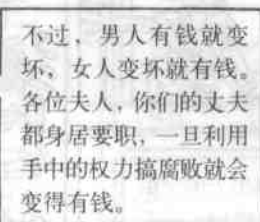 不过，男人有钱就变
坏，女人变坏就有钱。
各位夫人，你们的丈夫
都身居要职，一旦利用
手中的权力搞腐败就会
变得有钱。